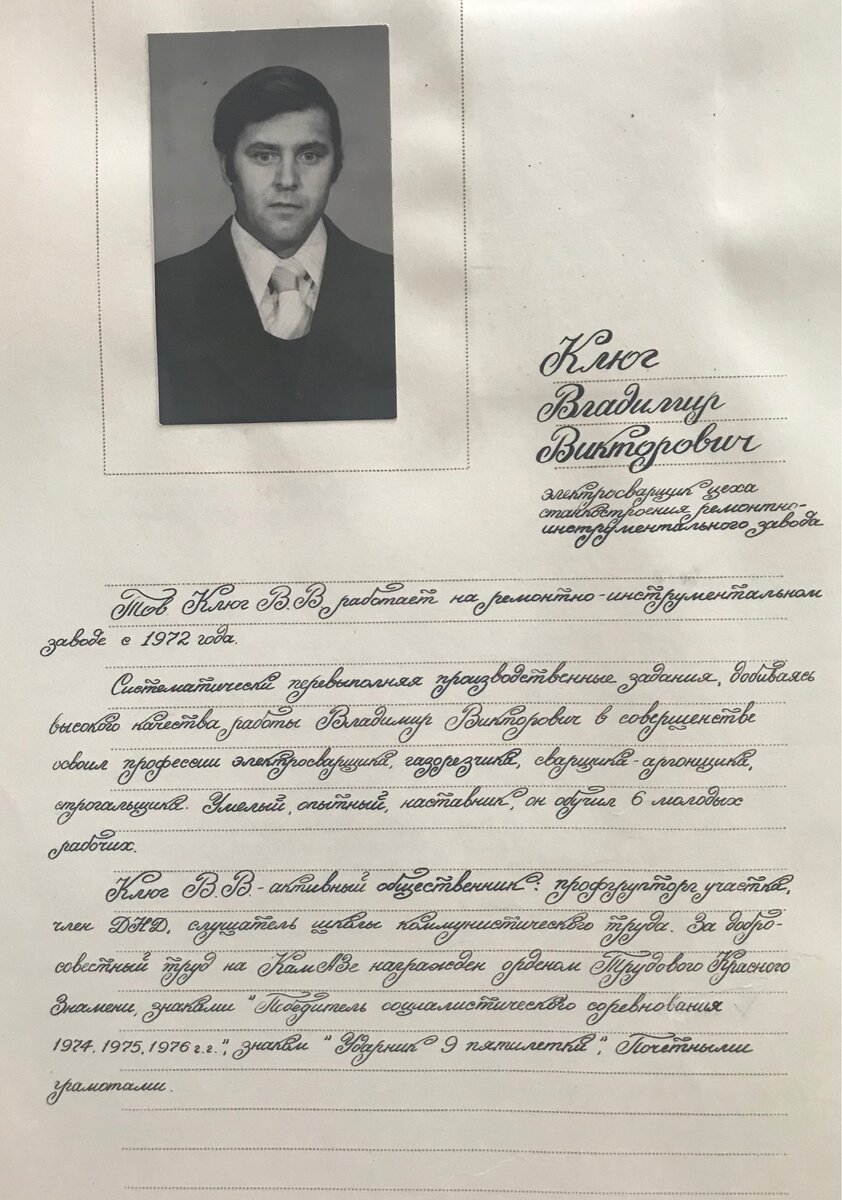 Клюг
Владимир
Викторович
электросварщик цеха
станкостроения ремонтно-
инструментального завода
Тов Клюг В.В работает на ремонтно-инструментальном
заводе с 1972 года.
Систематически перевыполняя производственные задания, добиваясь
высокого качества работы Владимир Викторович в совершенстве
освоил профессии электросварщика, газорезчика, сварщика-аргонщика,
строгальщика. Умелый, опытный, наставник, он обучил 6 молодых
рабочих.
Клюг В.В.-активный общественник: профгрупторг участка,
член ДНД, слушатель школы коммунистического труда. За добро-
совестный труд на КамАЗе награжден орденом Трудового Красного
Знамени, знаками "Победитель социалистического соревнования
1974, 1975, 1976 г.г.", знаком "Ударник 9 пятилетки", Почетными
грамотами.